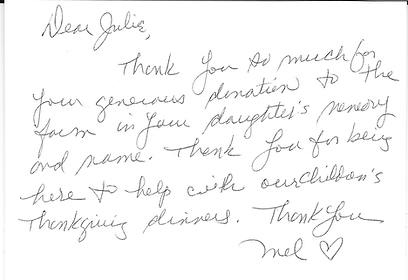 Dear Julie,
Thank you so much for
your generous donation to the
farm in your daughter's memory
and name. Thank you for being
here to help with our children's
Thanksgiving dinners. Thank you
Mel ♡